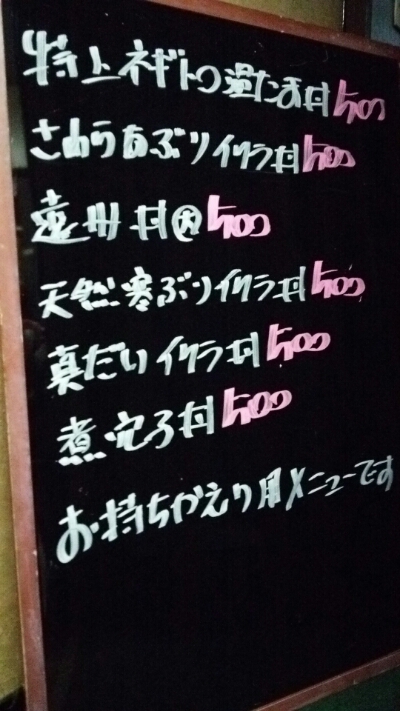 特上ネギトロ温たま丼 500
さわらあぶりイクラ丼 500
遠州丼 大 500
天然寒ぶりイクラ丼 500
真だいイクラ丼 500
煮穴子丼 500
お持ちかえり用メニューです